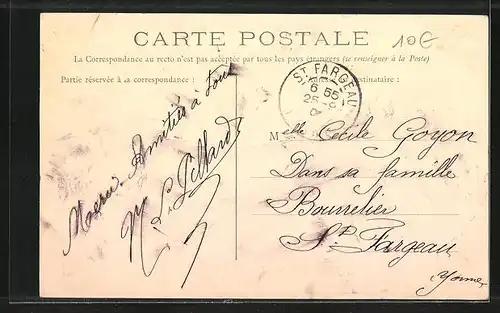 CARTE POSTALE
10€
La Correspondance au recto n'est pas acceptée par tous les pays étrangers (se renseigner à la Poste)
Partie réservée à la correspondance :
destinataire :
ST FARGEAU
6 55
25-9
Merci. Amitiés à tous
Melle Cecile Goyon
Dans sa famille
Bourrelier
St Fargeau
Yonne